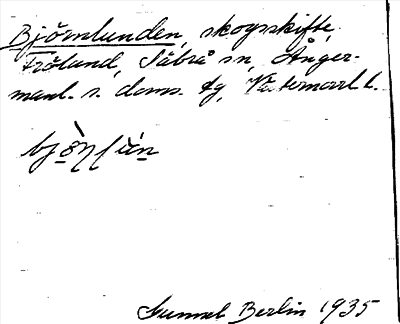 Björnlunden, skogsskifte,
Frölund, Säbrå sn, Ånger-
manl. s. doms. tg, Västernorrl. l.
Gunnel Berlin 1935